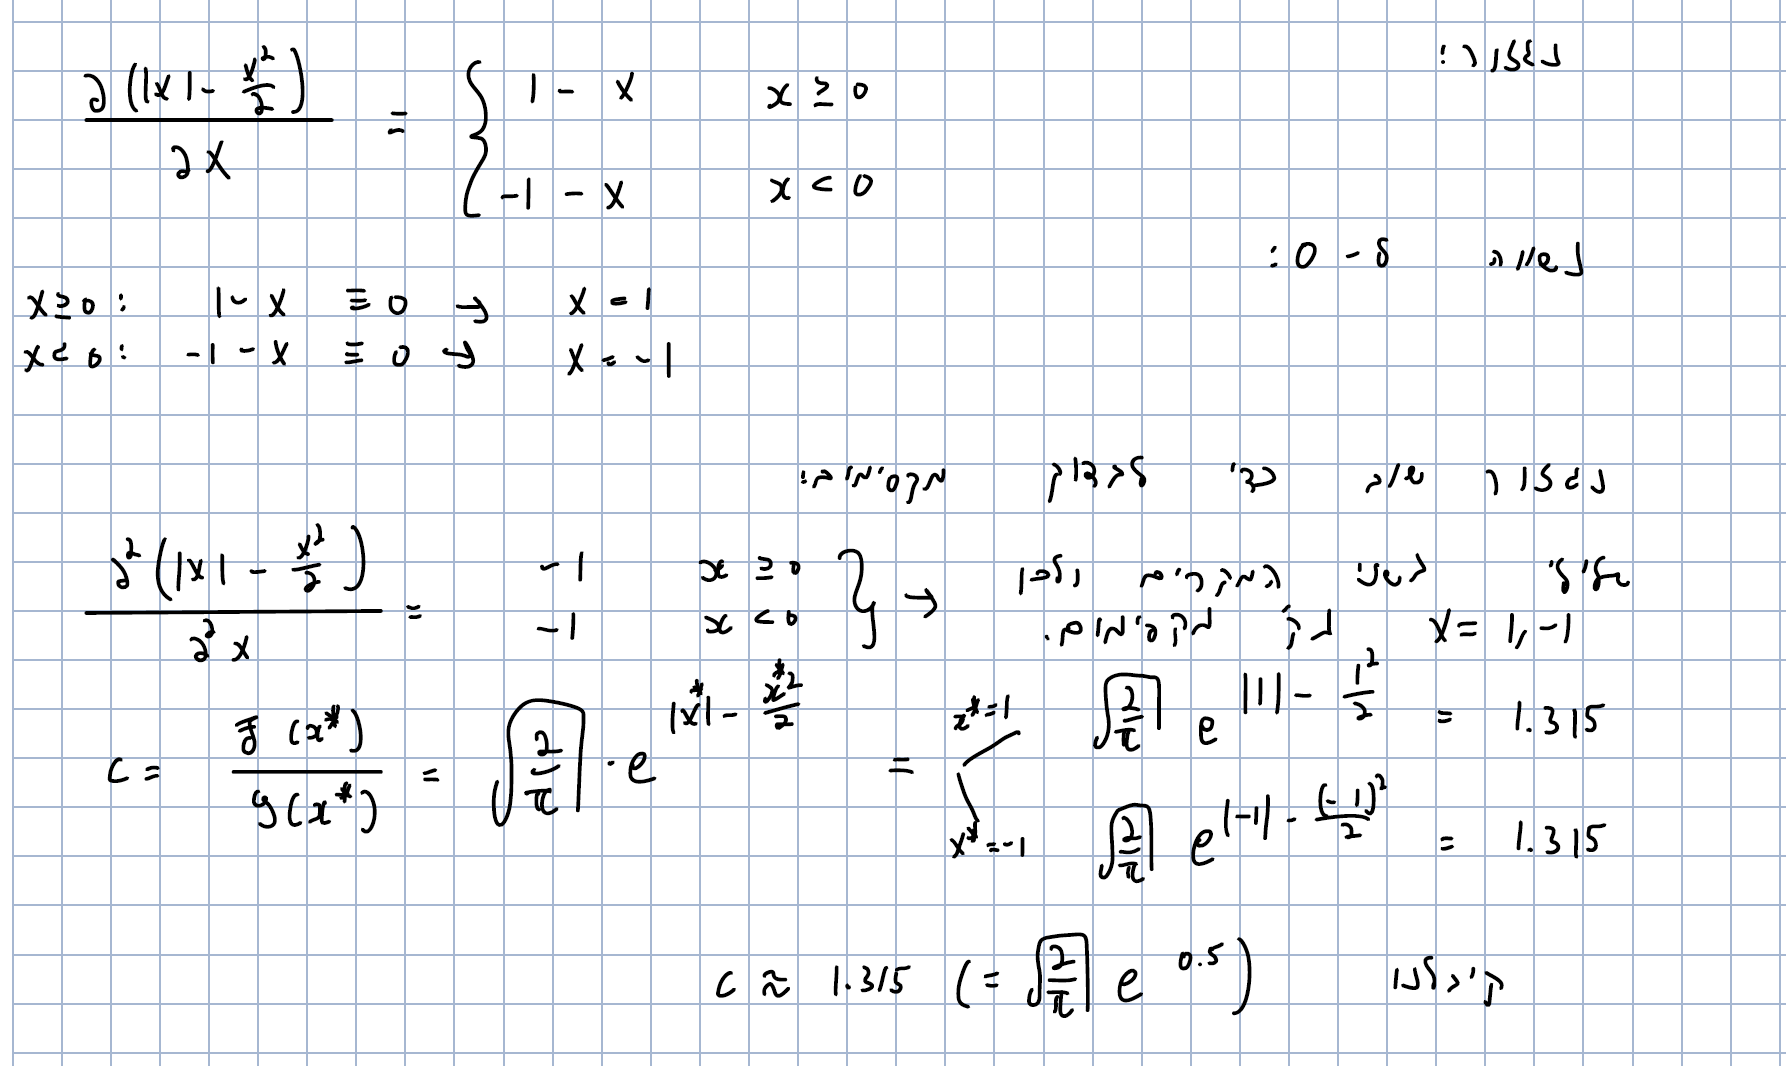 נגזור:
∂(|x| - x²/2) / ∂x = { 1 - x    x ≥ 0
-1 - x    x < 0
נשווה ל - 0:
x ≥ 0: 1 - x ≡ 0 → x = 1
x < 0: -1 - x ≡ 0 → x = -1
נגזור שוב כדי לבדוק מקסימום:
∂²(|x| - x²/2) / ∂²x = -1    x ≥ 0
-1    x < 0 } → שלילי בשני המקרים ולכן
x = 1, -1 נק' מקסימום.
c = f(x*) / g(x*) = √(2/π) · e^(|x*| - x*²/2) = x* = 1 √(2/π) e^(|1| - 1²/2) = 1.315
x* = -1 √(2/π) e^(|-1| - (-1)²/2) = 1.315
קיבלנו c ≈ 1.315 (= √(2/π) e^0.5)